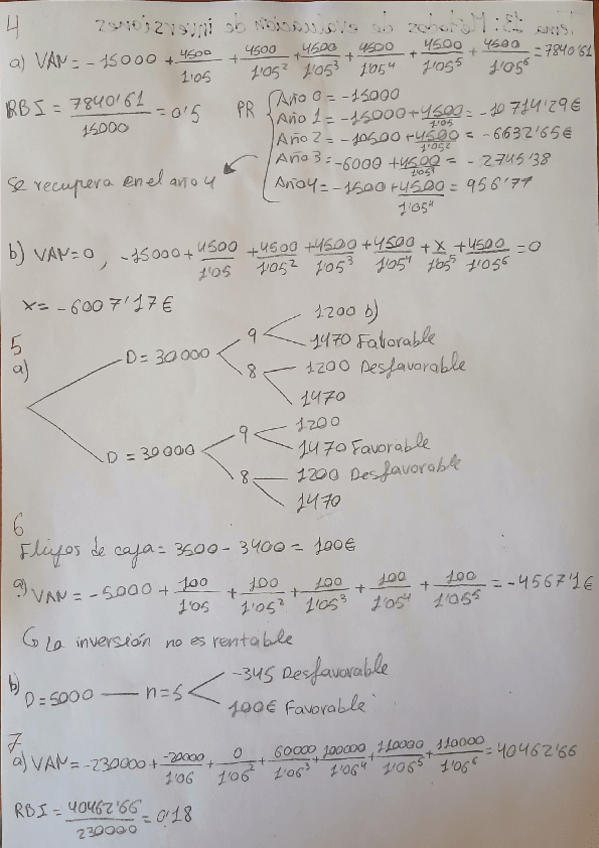 4
a) VAN = -15000 + 4500/1'05 + 4500/1'05² + 4500/1'05³ + 4500/1'05⁴ + 4500/1'05⁵ + 4500/1'05⁶ = 7840'61
RBI = 7840'61/15000 = 0'5
PR
Año 0 = -15000
Año 1 = -15000 + 4500/1'05 = -10714'29€
Año 2 = -10500 + 4500/1'05² = -6632'65€
Año 3 = -6000 + 4500/1'05³ = -2745'38
Año 4 = -1500 + 4500/1'05⁴ = 956'77
Se recupera en el año 4
b) VAN=0, -15000 + 4500/1'05 + 4500/1'05² + 4500/1'05³ + 4500/1'05⁴ + x/1'05⁵ + 4500/1'05⁶ = 0
x = -6007'17€
5
a)
D = 30000
9
1200 b)
1470 Favorable
8
1200 Desfavorable
1470
D = 30000
9
1200
1470 Favorable
8
1200 Desfavorable
1470
6
Flujos de caja = 3500 - 3400 = 100€
a) VAN = -5000 + 100/1'05 + 100/1'05² + 100/1'05³ + 100/1'05⁴ + 100/1'05⁵ = -4567'1€
La inversión no es rentable
b) D = 5000 — n = 5
-345 Desfavorable
100€ Favorable
7
a) VAN = -230000 + -20000/1'06 + 0/1'06² + 60000/1'06³ + 100000/1'06⁴ + 110000/1'06⁵ + 110000/1'06⁶ = 40462'66
RBI = 40462'66/230000 = 0'18